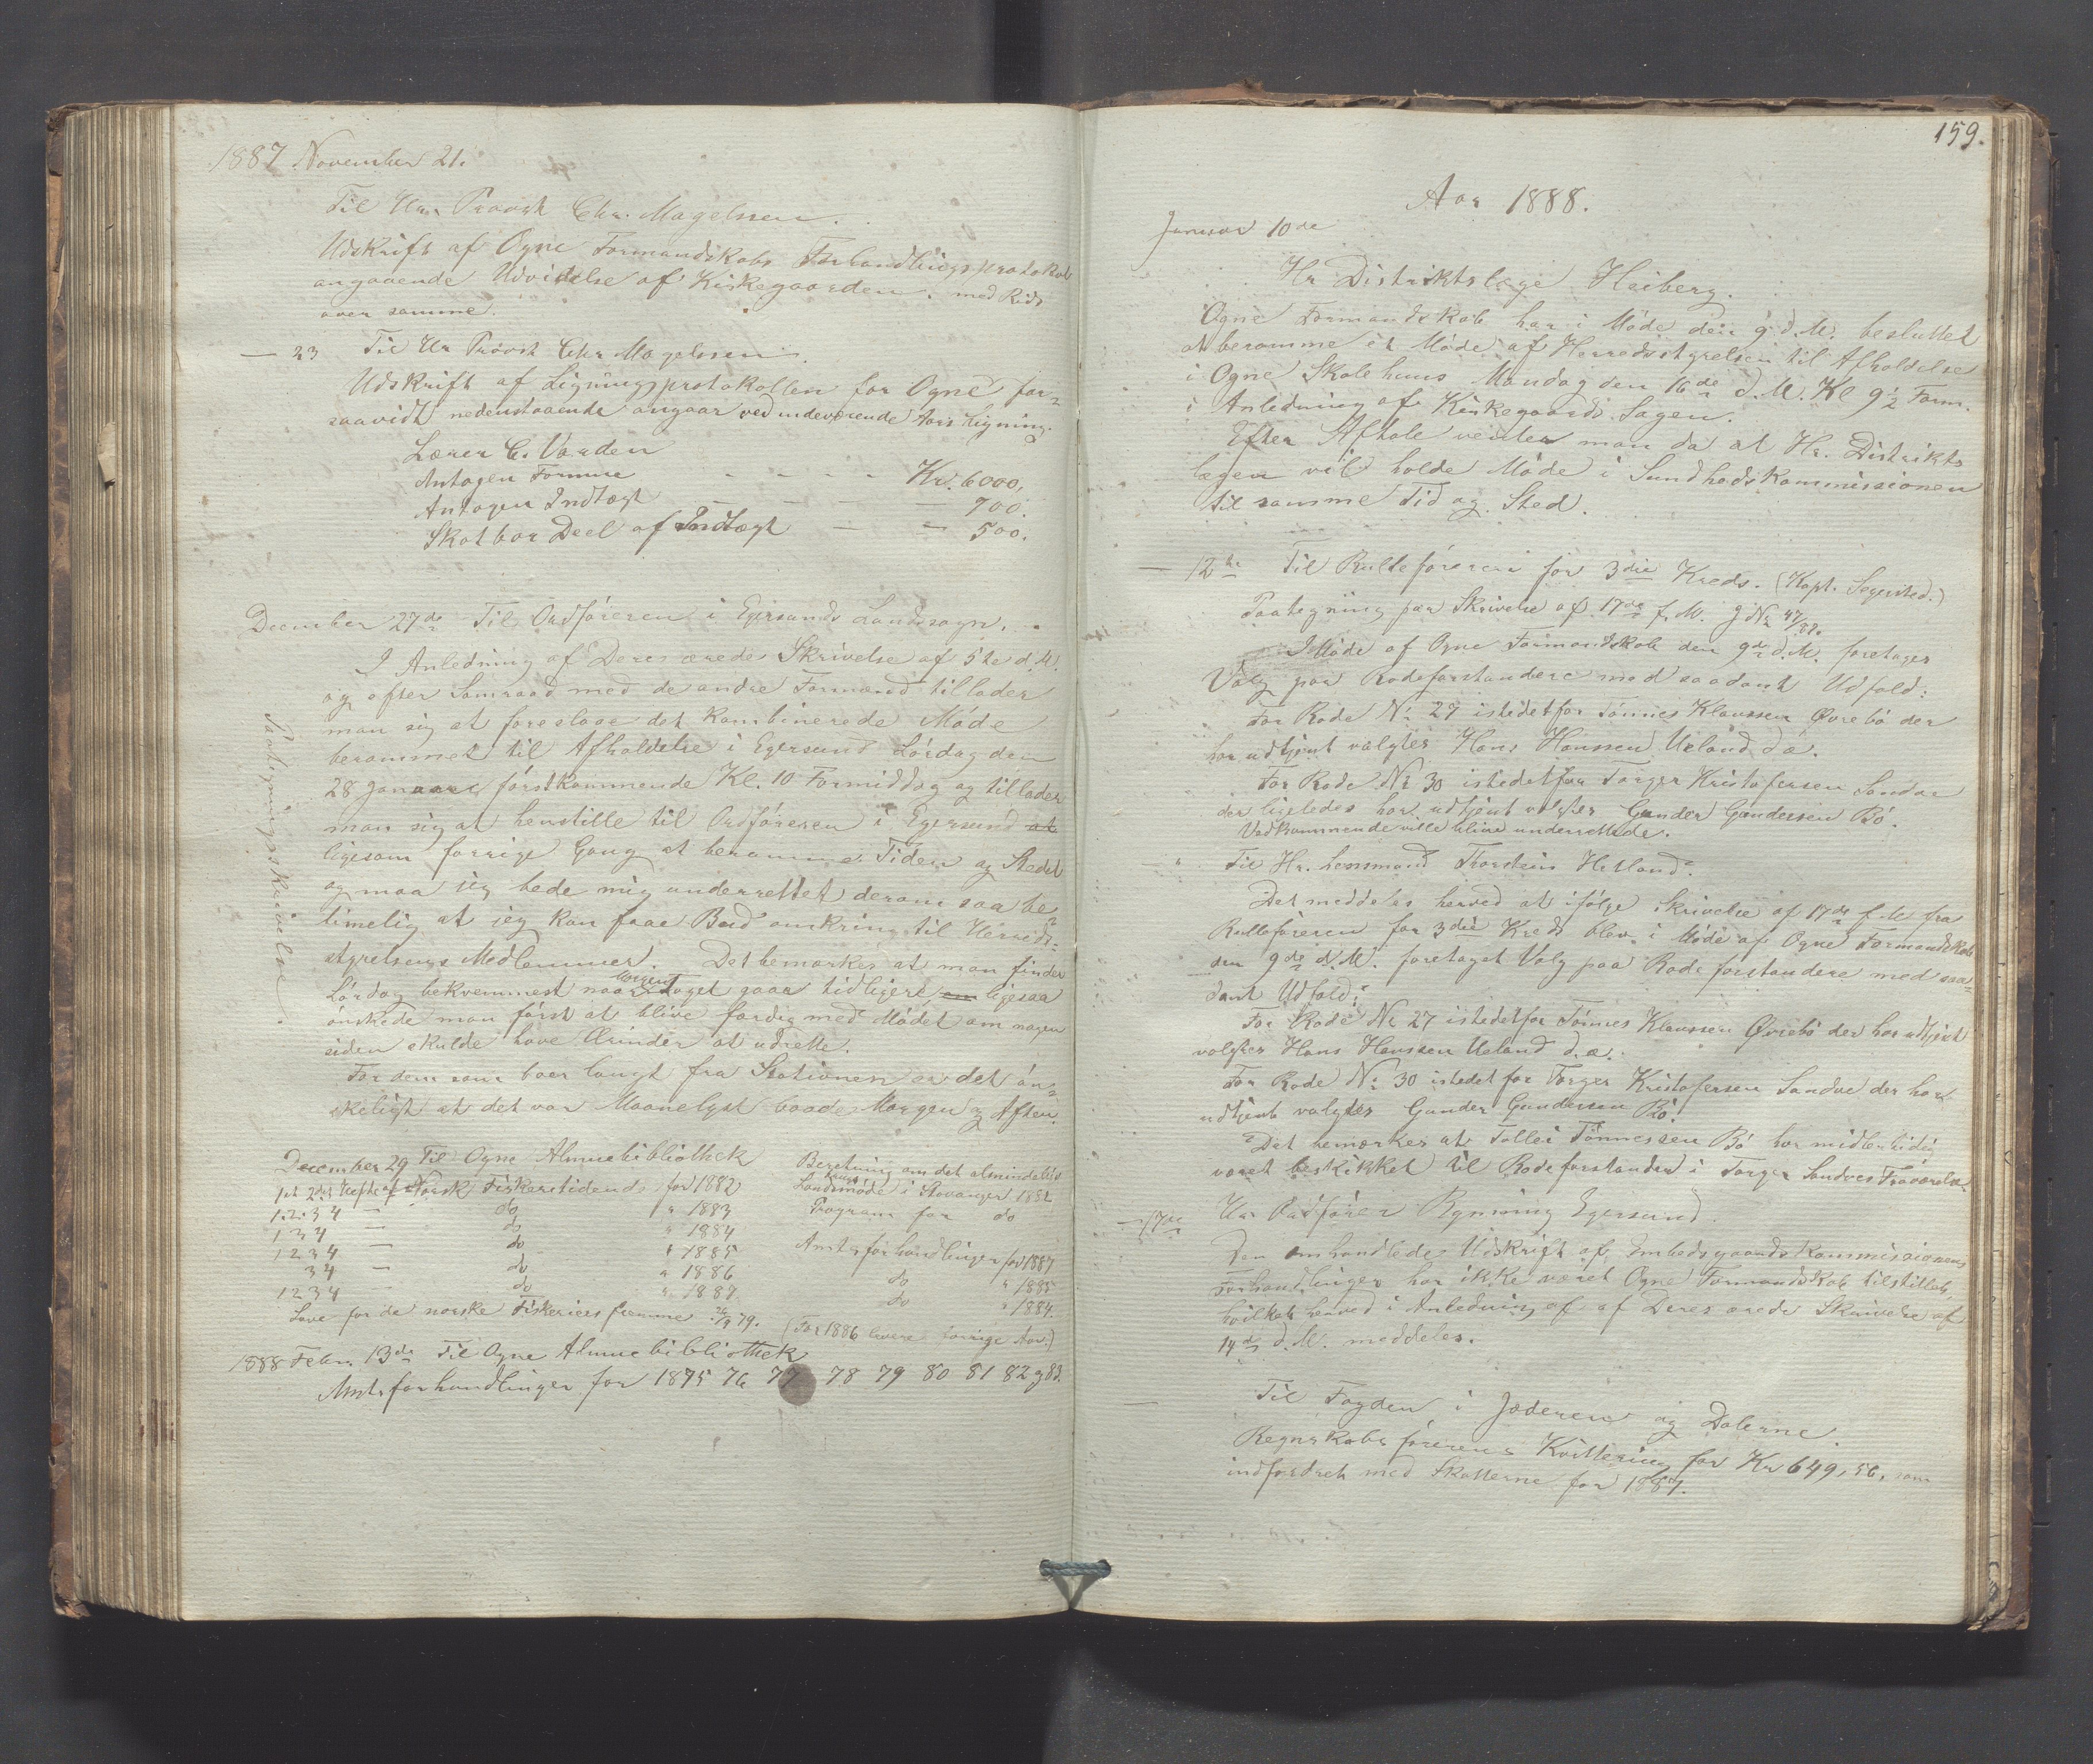 1887 November 21.
Til Hr. Provst Chr. Magelssen.
Udskrift af Ogne Formandskabs Forhandlingsprotokol
angaaende Udvidelse af Kirkegaarden. med Rids
over samme.
— 23 Til Hr Provst Chr Magelssen.
Udskrift af Ligningsprotokollen for Ogne for-
saavidt nedenstaaende angaar ved indeværende Aars Ligning.
Lærer C. Varden
Antagen Formue - - - - Kr. 6000,
Antagen Indtægt — — — — 700.
Skatbar Deel af Indtægt — — 500.
December 27de Til Ordføreren i Egersunds Landsogn.
Paategningsskrivelse.
I Anledning af Deres ærede Skrivelse af 5te d. M.
og efter Samraad med de andre Formænd tillader
man sig at foreslaae det kombinerede Møde
berammet til Afholdelse i Egersund Lørdag den
28 Januar førstkommende Kl. 10 Formiddag og tillader
man sig at henstille til Ordføreren i Egersund at
ligesom forrige Gang at beramme Tiden og Stedet
og maa jeg bede mig underrettet derom saa be-
timelig at jeg kan faae Bud omkring til Herreds-
styrelsens Medlemmer. Det bemærkes at man finder
Lørdag bekvemmest naar Morgentoget gaar tidligere, om ligesaa
ønskede man først at blive færdig med Mødet om nogen
siden skulde have Ærinder at udrette.
For dem som boer langt fra Stationen er det øn-
skeligt at det var Maanelyst baade Morgen og Aften.
December 29 Til Ogne Almuebibliothek
1st 2det Hefte af Norsk Fiskeritidende for 1882
1.2.3 4 — do " 1883
1 3 4 — do " 1884
1 2 3 4 — do " 1885
3 4 — do " 1886
1 2 3 4 — do " 1887
Love for de norske Fiskeriers fremme 79.
Beretning om det almindelige
Landsmøde i Stavanger 1882
Program for do
Amtsforhandlinger for 1887
do " 1885
do " 1884.
(For 1886 levere forrige Aar.)
1888 Febr. 13de Til Ogne Almuebibliothek
Amtsforhandlinger for 1875 76 77 78 79 80 81 82 og 83.
159.
Aar 1888.
Januar 10de
Hr Distriktslæge Heiberg.
Ogne Formandskab har i Møde den 9 d. M. besluttet
at beramme et Møde af Herredsstyrelsen til Afholdelse
i Ogne Skolehuus Mandag den 16de d. M. Kl 9½ Form.
i Anledning af Kirkegaards Sagen.
Efter Aftale venter man da at Hr. Distrikts
lægen vil holde Møde i Sundhedskommissionen
til samme Tid og Sted.
— 12te Til Rulleføreren for 3die Kreds. (Kapt. Sogersted.)
Paategning paa Skrivelse af 17de f. M. J No 47/87.
I Møde af Ogne Formandskab den 9de d. M. foretages
Valg paa Rodeforstandere med saadant Udfald:
For Rode No 27 istedetfor Tønnes Klaussen Øvrebø der
har udtjent valgtes Hans Hanssen Ueland d. æ.
For Rode No 30 istedetfor Torger Kristofersen Sandve
der ligeledes har udtjent valgtes Gunder Gundersen Bø.
Vedkommende ville blive underrettede.
— " Til Hr. Lensmand Thorstein Hetland.
Det meddeles herved at ifølge Skrivelse af 17de f. M fra
Rulleføreren for 3die Kreds blev i Møde af Ogne Formandskab
den 9de d. M. foretaget Valg paa Rodeforstandere med saa-
dant Udfald:
For Rode No 27 istedetfor Tønnes Klaussen Øvrebø der har udtjent
valgtes Hans Hanssen Ueland d. æ.
For Rode No 30 istedetfor Torger Kristofersen Sandve der har
udtjent valgtes Gunder Gundersen Bø.
Det bemærkes at Tollei Tønnessen Bø har midlertidig
været beskikket til Rodeforstander i Torger Sandves Fraværelse.
— 17de Hr. Ordfører Rynning Egersund.
Den omhandlede Udskrift af Embedsgaards Kommissionens
Forhandlinger har ikke været Ogne Formandskab tilstillet,
hvilket herved i Anledning af af Deres ærede Skrivelse af
14de d. M. meddeles.
— Til Fogden i Jæderen og Dalerne.
Regnskabsførerens Kvittering for Kr 649,56, som
indfordret med Skatterne for 1887.